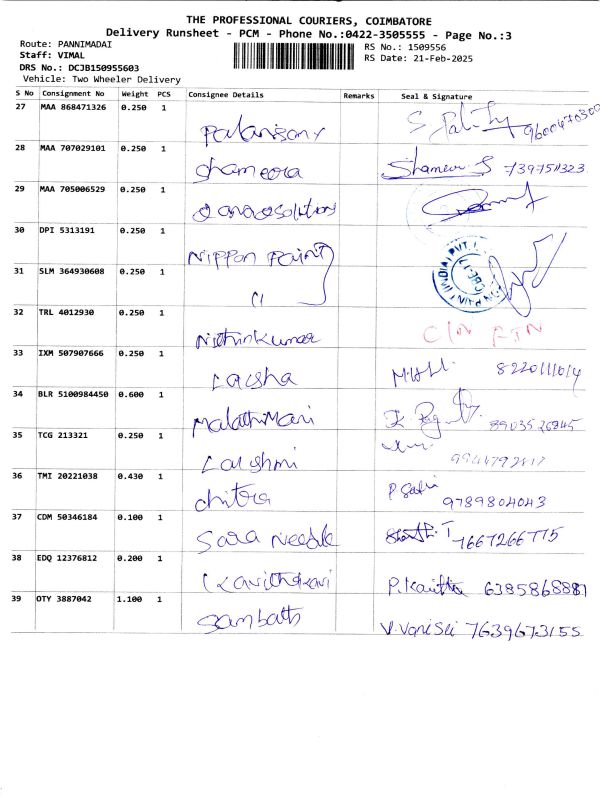 THE PROFESSIONAL COURIERS, COIMBATORE
Delivery Runsheet - PCM - Phone No.:0422-3505555 - Page No.:3
Route: PANNIMADAI
RS No.: 1509556
Staff: VIMAL
RS Date: 21-Feb-2025
DRS No.: DCJB150955603
Vehicle: Two Wheeler Delivery
S No Consignment No Weight PCS Consignee Details Remarks Seal & Signature
27 MAA 868471326 0.250 1 9600470300
28 MAA 707029101 0.250 1 Shameera Shameer S
29 MAA 705006529 0.250 1
30 DPI 5313191 0.250 1 Nippon Paint
31 SLM 364930608 0.250 1 (INDIA) PVT.
32 TRL 4012930 0.250 1 Nithinkumar C/N RTN
33 IXM 507907666 0.250 1
34 BLR 5100984450 0.600 1 MalathiMari
35 TCG 213321 0.250 1 Lakshmi
36 TMI 20221038 0.430 1 chitra 9789804043
37 CDM 50346184 0.100 1 Sara Needle 7667266775
38 EDQ 12376812 0.200 1 P. 6385868881
39 OTY 3887042 1.100 1 Sambath 7639673155